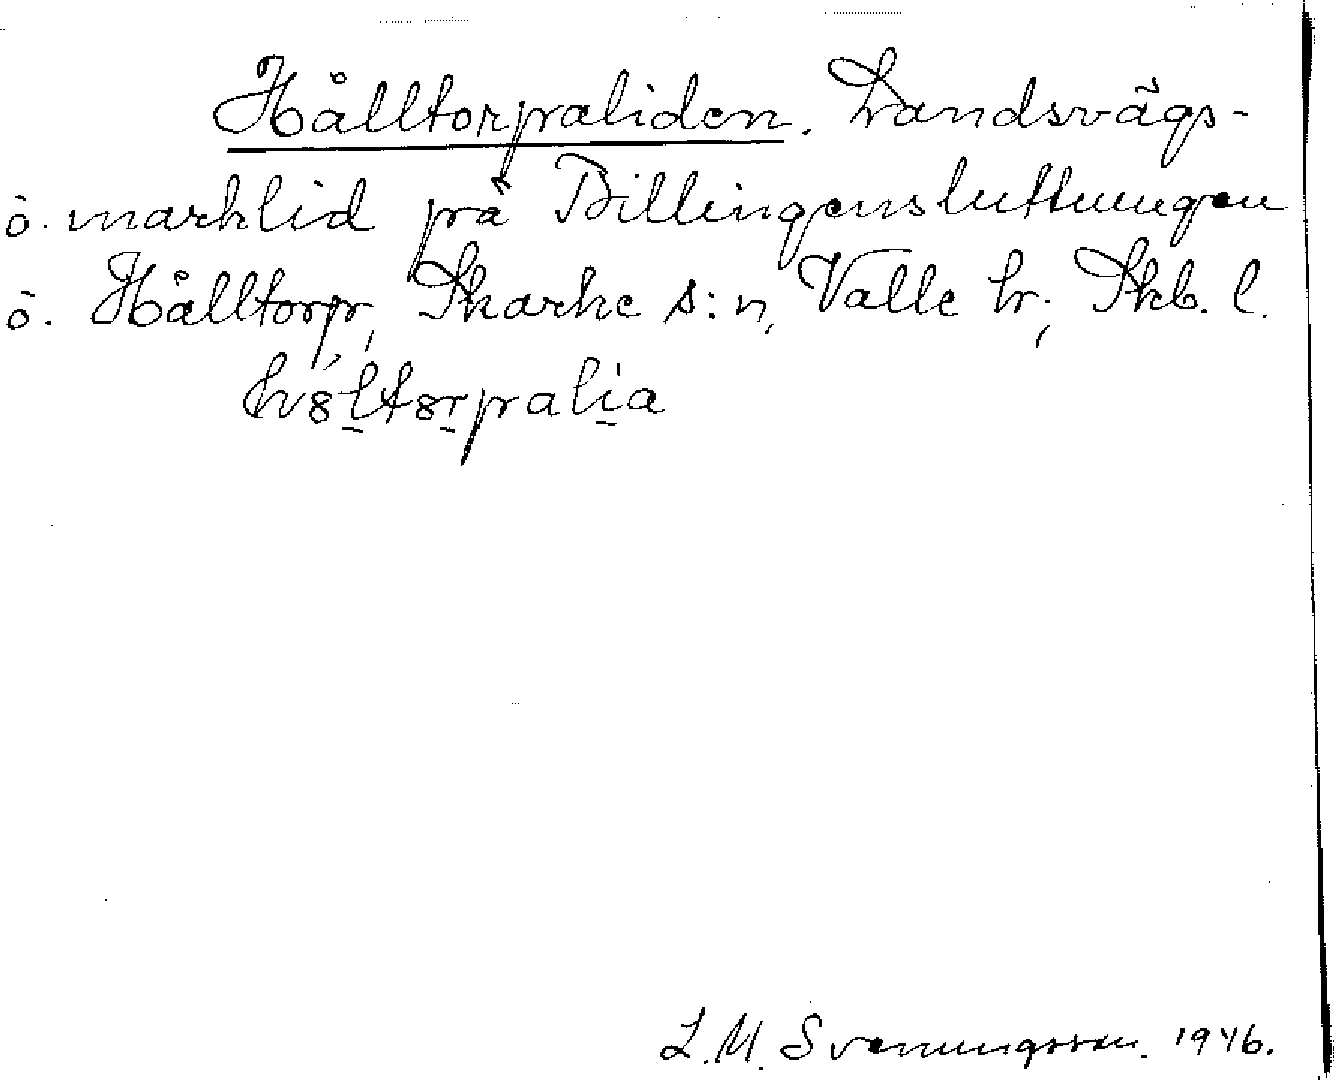 Hålltorpaliden. Landsvägs-
o. marklid på Billingensluttningen
ö. Hålltorp, Skarke s:n, Valle hr, Skb. l.
L.M. Svenungsson. 1946.